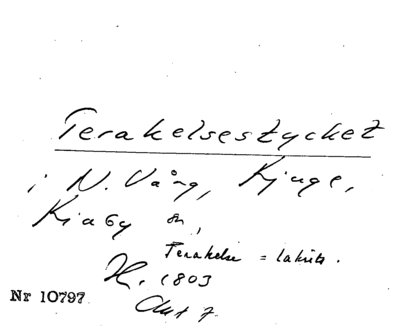 Terakelsestycket
i N. Vång, Kjuge,
Kiaby sn,
Terakelse = lakrits.
H. 1803
Nr 10797.
Akt 7.